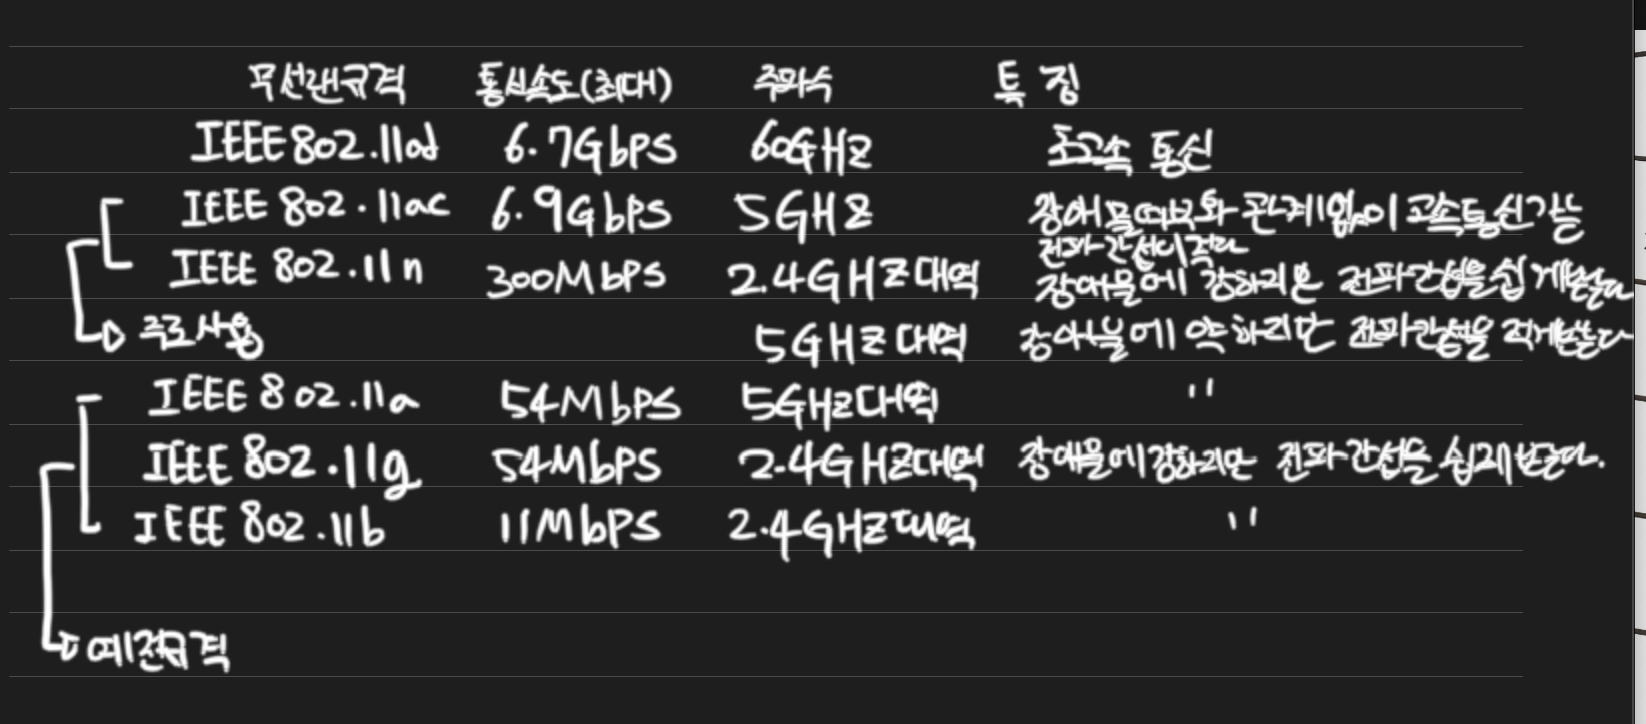 무선랜규격 통신속도(최대) 주파수 특징
IEEE802.11ad 6.7GbPS 60GHz 초고속 통신
IEEE 802.11ac 6.9GbPS 5GHz 장애물여부와 관계없이 고속통신가능
전파간섭이적다
IEEE 802.11n 300MbPS 2.4GHz대역 장애물에 강하지만 전파간섭을쉽게받는다
주로사용 5GHz대역 장애물에 약하지만 전파간섭을 적게받는다
IEEE 802.11a 54MbPS 5GHz대역 〃
IEEE 802.11g 54MbPS 2.4GHz대역 장애물에강하지만 전파간섭을 쉽게받는다.
IEEE 802.11b 11MbPS 2.4GHz대역 〃
예전규격